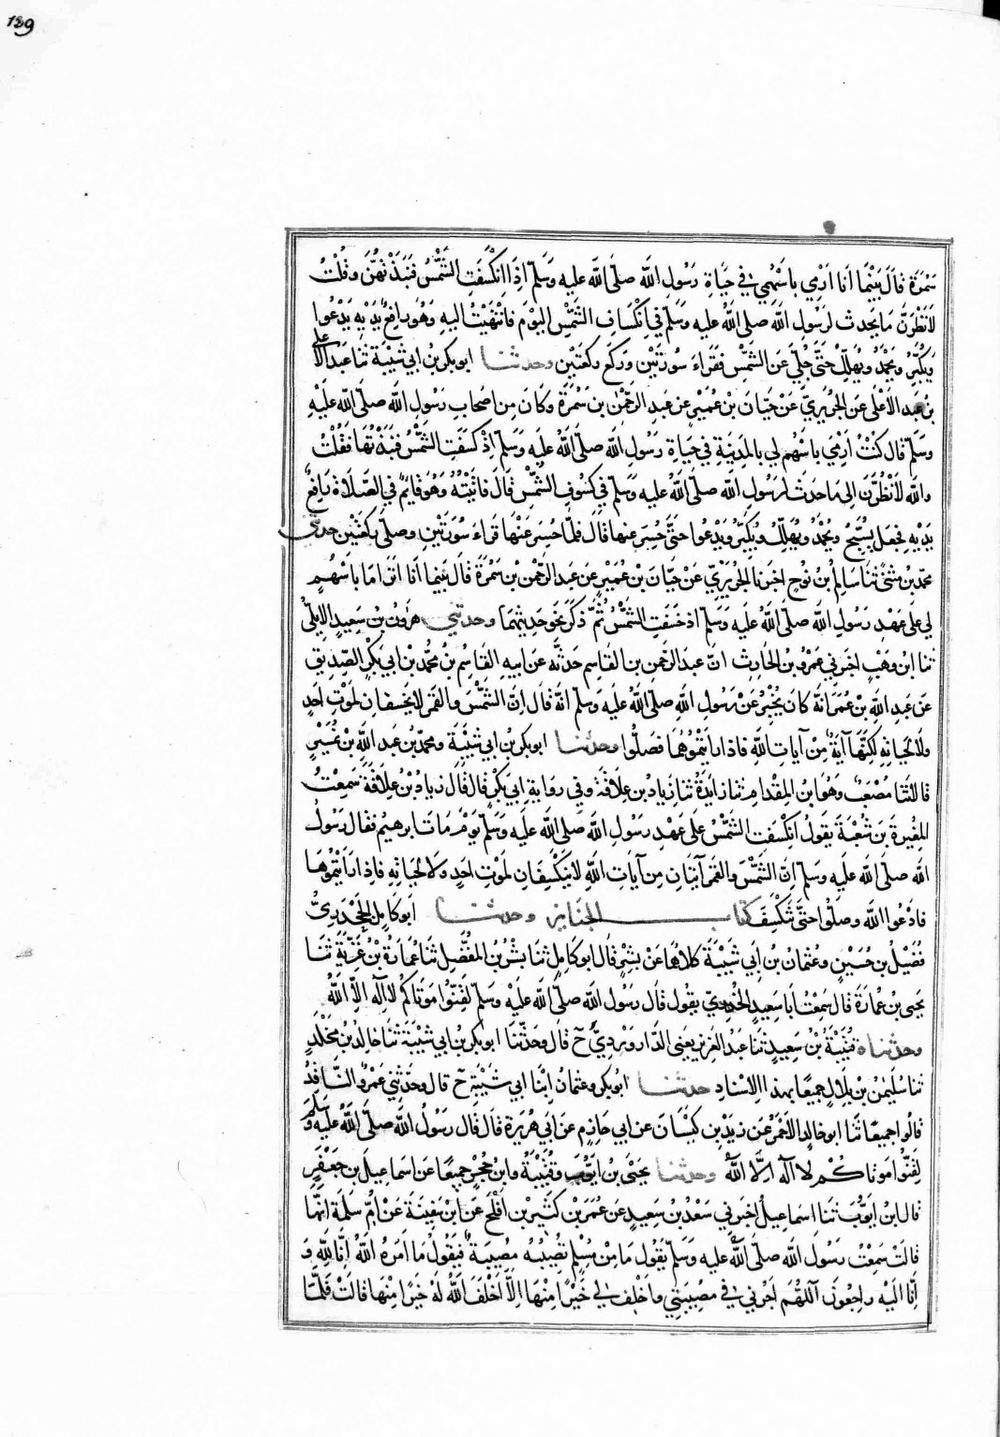 189
سَمُرَةَ قَالَ بَيْنَمَا اَنَا اَرْمِي بِاَسْهُمِي فِي حَيَاةِ رَسُولِ اللَّه صلَى اللَّه عليه وَسَلَّم اِذَا انْكَسَفَتِ الشَّمْسُ فَنَبَذْتُهُنَّ وَقُلْتُ
لَاَنْظُرَنَّ مَا يحدث لرَسُولِ اللَّه صلى اللَّهُ عليه وسلَّم فِي اِنْكِسَافِ الشَّمْسِ اليَوْمَ فَانْتَهَيْتُ اليهِ وَهُوَ رَافِعٌ يَدَيْهِ يَدْعُوا
وَيُكَبِّرُ وَيَحْمَدُ وَيُهَلِّلُ حَتَّى جُلِّيَ عَنِ الشَّمْسِ فَقَرَاءَ سُورَتَيْنِ وَرَكَعَ رَكْعَتَيْنِ وحدثنا ابوبكر بْنُ ابي شَيْبَة ثنا عَبد الاعلى
بن عبد الاَعْلَى عَنِ الجُرَيْرِيِّ عَنْ حَيَّانَ بْنِ عُمَيْرٍ عن عبدِ الرَّحْمَنِ بن سَمُرَةَ وَكَانَ مِن اَصْحَابِ رَسُولِ اللَّه صلى اللَّه عَلَيْهِ
وَسَلَّم قَال كُنْتُ اَرْمِي بِاَسْهُمٍ لِي بِالمَدِينَةِ فِي حَيَاةِ رَسُولِ اللَّه صلَى اللَّهُ عليه وَسَلَّم اِذْ كَسَفَتِ الشَّمْسُ فنَبَذْتُهَا فَقُلْتُ
واللَّهِ لَاَنْظُرَنَّ الى مَا حَدَثَ لرَسُولِ اللَّه صلى اللَّهُ عليه وسلَّم فِي كُسُوفِ الشَّمْسِ قَالَ فَاَتَيْتُهُ وَهُوَ قَايِمٌ فِي الصَّلَاةِ رَافِعٌ
يَدَيْهِ فجَعَلَ يُسَبِّحُ وَيَحْمَدُ وَيُهَلِّلُ وَيُكَبِّرُ وَيَدْعُوا حَتَّى حُسِرَ عنها قَالَ فلمَّا حُسِرَ عَنْهَا قَرَاءَ سُورَتَيْنِ وصلى رَكْعَتَيْنِ حدثنا
محمّد بْنُ مثنَّى ثنا سَالِمُ بْنُ نُوحٍ اخبرنا الجُرَيْرِيّ عَنْ حَيَّانَ بْنِ عُمَيْرٍ عَن عَبدِ الرَّحْمَنِ بْنِ سَمُرَةَ قَالَ بَيْنَمَا اَنَا اَتَرَامَا بِاَسْهُمٍ
لِي عَلَى عَهْدِ رَسُولِ اللَّه صلَى اللَّهُ عليه وَسَلَّم اذ خَسَفَتِ الشَّمْسُ ثُمَّ ذَكَرَ نَحْوَ حَدِيثِهِمَا وحدثني هٰرُونُ بْنُ سَعِيدٍ الاَيْلِيُّ
ثنا ابْنُ وَهْبٍ اخبَرَنِي عَمْرُو بْنُ الحَارِثِ انَّ عبدَ الرَّحمنِ بن القَاسِم حَدَّثَه عَنْ ابيهِ القَاسِمِ بْنِ محمّد بْنِ ابي بَكْرٍ الصِّدِّيقِ
عَنْ عَبد اللَّهِ بْنِ عُمَرَ اَنَّهُ كَانَ يُخْبِرُ عَنْ رَسُولِ اللَّهِ صلّى اللَّهُ عليه وَسلم انَّهُ قَالَ اِنَّ الشَّمْسَ وَالقَمَرَ لَا يَخْسِفَانِ لِمَوْتِ اَحَدٍ
وَلَا لِحَيَاتِهِ لَكِنَّهَا آيَةٌ مِنْ آيَاتِ اللَّه فَاِذَا رَاَيْتُمُوهُمَا فَصَلُّوا وحدثنا ابوبكر بْنُ ابي شَيْبَةَ ومحمّد بن عبد اللَّهِ بْنِ نُمَيْرٍ
قَالَا ثنا مُصْعَبٌ وَهُوَ ابنُ المِقْدَامِ ثنا زَايِدَةُ ثنا زِيَادُ بْنُ عِلَاقَةَ وفي رِوَايَةِ اَبِي بَكْرٍ قَالَ قَالَ زِيَادُ بْنُ عِلَاقَةَ سَمِعْتُ
المُغِيرَةَ بْنَ شُعْبَةَ يَقُولُ اِنْكَسَفَتِ الشَّمْسُ عَلَى عَهْدِ رَسُولِ اللَّه صَلى اللَّه عليه وَسلم يَوْمَ مَاتَ ابرهِيمُ فقال رَسُولُ
اللَّه صلى اللَّه عليه وسلم اِنَّ الشَّمْسَ والقَمَرَ آيَتَانِ مِن آيَاتِ اللَّهِ لَا يَنْكَسِفَانِ لِمَوْتِ اَحَدٍ وَلَا لِحَيَاتِهِ فَاِذَا رَاَيْتُمُوهَا
فَادْعُوا اللَّه وصَلُّوا حتَّى تَنْكَسِفَ كتاب الجنايز وحدثنا اَبو كَامِلٍ الجَحْدَرِيُّ
فُضَيْلُ بْن حُسَيْنٍ وعُثمَانُ بْنُ اَبِي شَيْبَةَ كِلَاهُمَا عَنْ بِشْرٍ قَالَ ابو كَامِلٍ ثنا بِشْرُ بْنُ المُفَضَّلِ ثنا عُمَارَةُ بْنُ غَزِيَّةَ ثنا
يَحيى بْنُ عُمَارَةَ قَالَ سَمِعْتُ اَبَا سَعِيدٍ الخُدْرِيّ يقول قَالَ رَسُولُ اللَّه صلى اللَّه عَلَيْهِ وَسَلَّم لَقِّنُوا مَوْتَاكُمْ لَا اِلَهَ اِلَّا اللَّهُ
وحدثناه قُتَيْبَةُ بْنُ سَعِيدٍ ثنا عَبْدُ العَزِيزِ يعني الدَّرَاوَرْدِيَّ حَ قَالَ وحَدَّثَنَا ابوبكر بْنُ ابي شَيْبَةَ ثنا خَالِدُ بْنُ مَخْلَدٍ
ثنا سُلَيْمٰنُ بن بِلَالٍ جميعًا بهذا الاِسْنَادِ حدثنا ابوبكر وعثمانُ ابْنَا ابي شَيْبَةَ حَ قال وحَدَّثَنِي عَمْرٌو النَّاقِدُ
قالوا جميعًا ثنا ابو خالدٍ الاَحْمَرُ عَن يَزِيدَ بنِ كَيْسَانَ عن ابي حَازِمٍ عَنْ اَبِي هُرَيْرَةَ قَالَ قَالَ رَسُولُ اللَّه صلَّى اللَّهُ عليه وسلم
لَقِّنُوا مَوْتَاكُمْ لا اله اِلَّا اللَّهُ وحدثنا يحْيَى بْنُ اَيُّوبَ وقُتَيْبَةُ وابنُ حُجْرٍ جميعًا عَنْ اسمَاعِيلَ بن جَعْفَرٍ
قال ابنُ اَيُّوبَ ثنا اسمَاعِيلُ اخبَرني سَعْدُ بْنُ سَعِيدٍ عن عُمَرَ بْنِ كَثِيرِ بْنِ اَفْلَحَ عَنْ ابْنِ سَفِينَةَ عَنْ اُمِّ سَلَمَةَ اَنَّهَا
قَالَتْ سَمِعْتُ رَسُولَ اللَّه صلى اللَّهُ عليه وَسَلّم يَقُولُ مَا مِنْ مُسْلِمٍ تُصِيبُهُ مُصِيبَةٌ فيَقُولُ مَا اَمَرَهُ اللَّهُ اِنَّا لِلَّهِ وَ
اِنَّا اِلَيْهِ رَاجِعُونَ اَللّهُمَّ اَجُرْنِي فِي مُصِيبَتِي وَاَخْلِفْ لِي خَيْرًا مِنْهَا اِلَّا اَخْلَفَ اللَّهُ لَهُ خَيْرًا مِنْهَا قَالَتْ فَلَمَّا